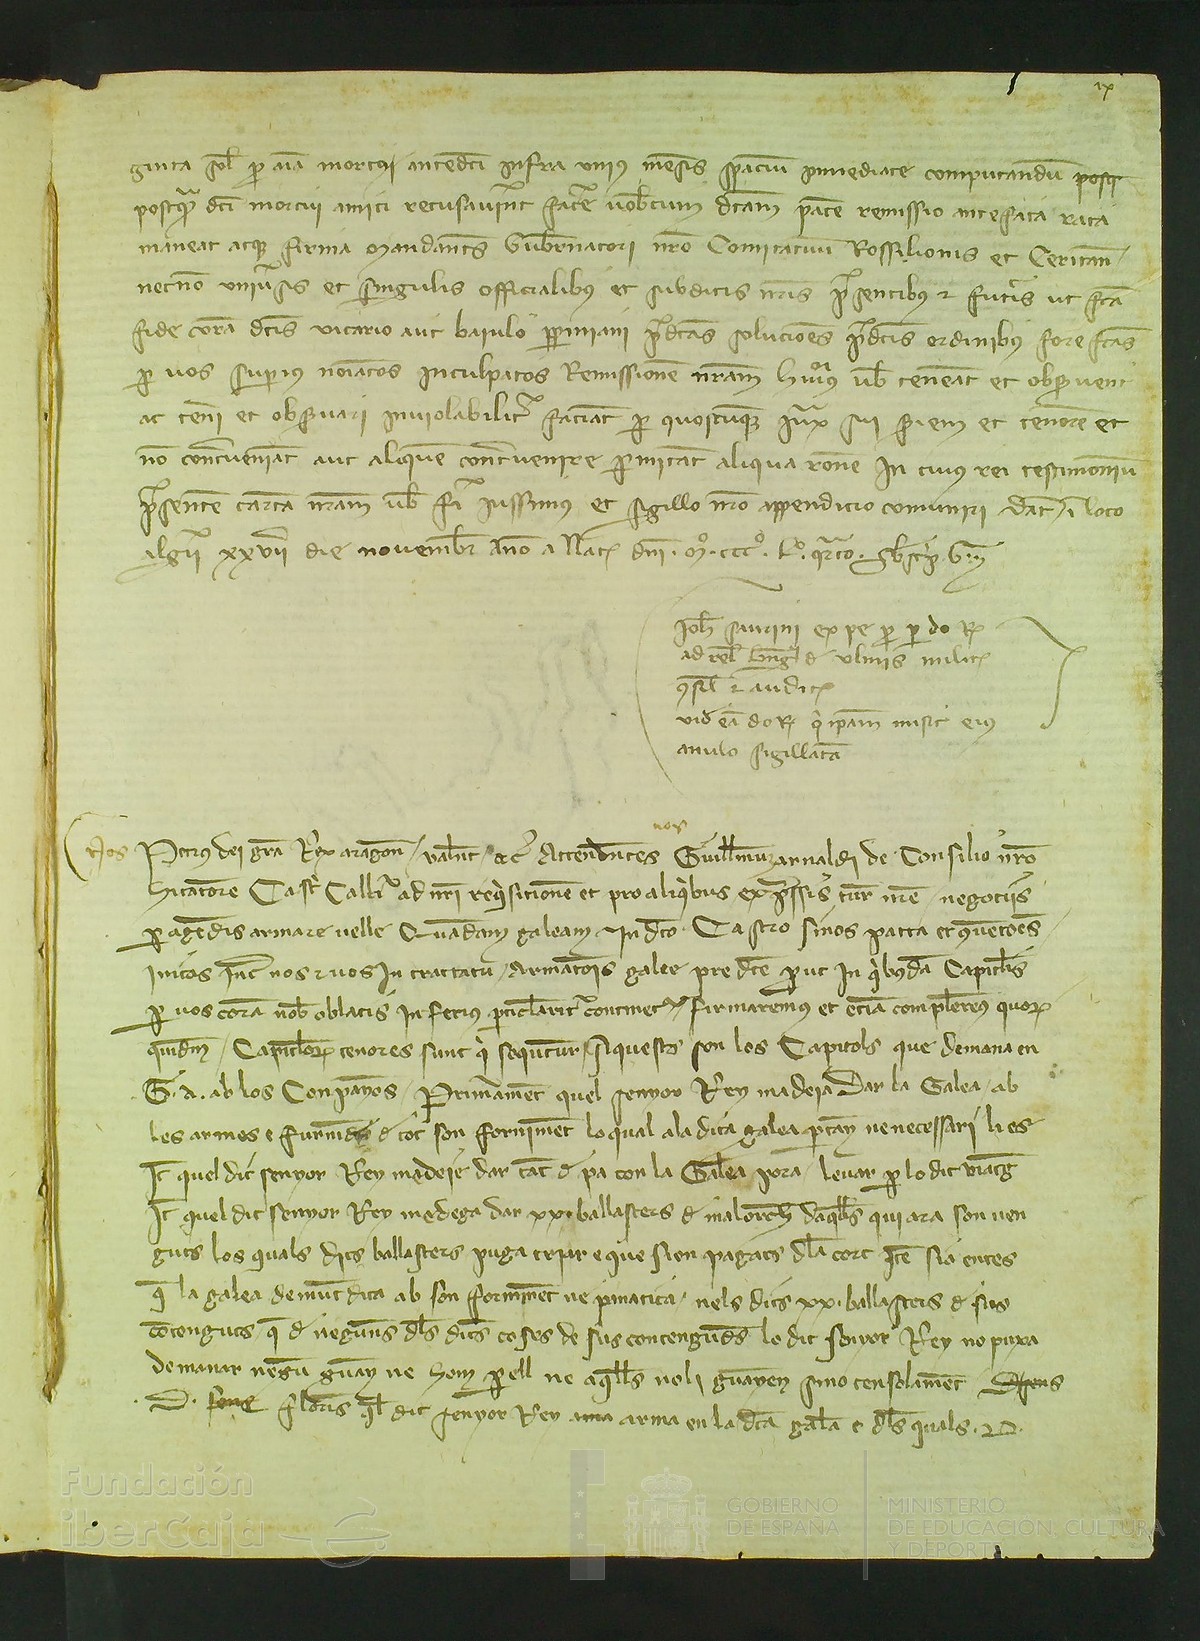 ix
ginta sol p aīa mortui antedc̄i infra unius mēsis spaciū inmediate computandū posq̄
postq̄ dc̄i mortui amici recusaviīnt facē vobcum dc̄am pacē remissio antefata rata
maneat atq firma mandantes Gub̄natori nr̄o Comitatuū Rossilionis et Ceritan
necnō univ̄sis et singulis officialibus et subditis nr̄is p̄sentibus et futīs ut fc̄a
fide cora dc̄is vicario aut baiulo ppiniani p̄dc̄as soluciōes p̄dc̄is ordinibus fore fc̄as
p vos supius noīatos inculpatos Remissionē nr̄am huiꝰ vob teneāt et obs̄vent
ac ten̄i et obs̄vari inviolabilit̄ faciāt p quoscūq iux̄ sui siem et tenorē et
nō cont̄veniāt aut aliquē cont̄venire p̄mitāt aliqua rōne In cuius rei testimoniū
p̄sentē cartā nr̄am vob fi iussimus et sigillo nr̄o appendicio comuniri Dat̄ ī loco
algīi xxvii die novembr̄ Ano a Nat̄ dn̄i Mº CCCº Lº qrto
Joh̄ saurini ex pe p do R̄
ad rel̄ b̄ng̃ d ulmis milit̄
ꝯsil̄ et audit̄
vid eā do R̄ q̄ ip̄am misit eius
anulo sigillatā
nos
Nos Petrus dei gr̄a Rex aragon̄ valn̄t etc̄ Attendentes Guillmū arnaldi de Consilio nr̄o
hitatorē Castr̄ Callr̄ ad nr̄i req̄sitionē et pro aliq̄bus exp̄ssis negotiis
p agēdis armare velle Quādam galeam In dc̄o Castro sinos pacta et ꝯventōes
initos int̄ nos et vos In tractatu armatōis galee predc̄e p ut In q̄bꝰdā Capitlis
p vos corā nob oblatis inferius pticlarit̄ continet̄ firmaremus et etiā compleremꝰ quoꝝ
quidm̄ Capitloꝝ tenores sunt q̄ sequntur Aquests son los Capitols que demana en
G. A. ab los Conpanōs Primāmēt quel senyor Rey madeia Dar la Galea ab
les armes e d tot son fornimēt lo qual ala dita galea ptāy ne necessari li es
It̄ quel dit senyor Rey madeie dar tāt d pa con la Galea porā levar p lo dit viatg̃
It̄ quel dit senyor Rey madega dar xx ballasters d malorch̄ daq̄lls qui ara son ven
guts los quals dits ballasters puga triar e que sien pagats dla cort Itē sia entes
q̄ la galea demūt dita ab son fornimēt ne panatica nels dits xx ballasters d sus
cōtenguts q̄ d neguns dls dits coses de sus contengudes lo dit senyor Rey no puxa
demanar negū guāy ne hom p ell ne aq̄lls neli guāyen sino tensolamēt
D. flōris q̄l dit senyor Rey arma en la dc̄a galea e dls quals D
Fundación
iberCaja
GOBIERNO
DE ESPAÑA
MINISTERIO
DE EDUCACIÓN, CULTURA
Y DEPORTE